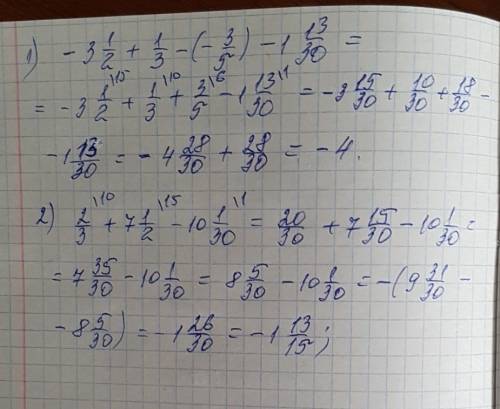 1) -3 1/2 + 1/3 - (-3/5) - 1 13/30 =
= -3 1/2 \15 + 1/3 \10 + 3/5 \6 - 1 13/30 \1 = -3 15/30 + 10/30 + 18/30 -
-1 13/30 = -4 28/30 + 28/30 = -4.
2) 2/3 \10 + 7 1/2 \15 - 10 1/30 \1 = 20/30 + 7 15/30 - 10 1/30 =
= 7 35/30 - 10 1/30 = 8 5/30 - 10 1/30 = -(9 31/30 -
- 8 5/30) = -1 26/30 = -1 13/15;